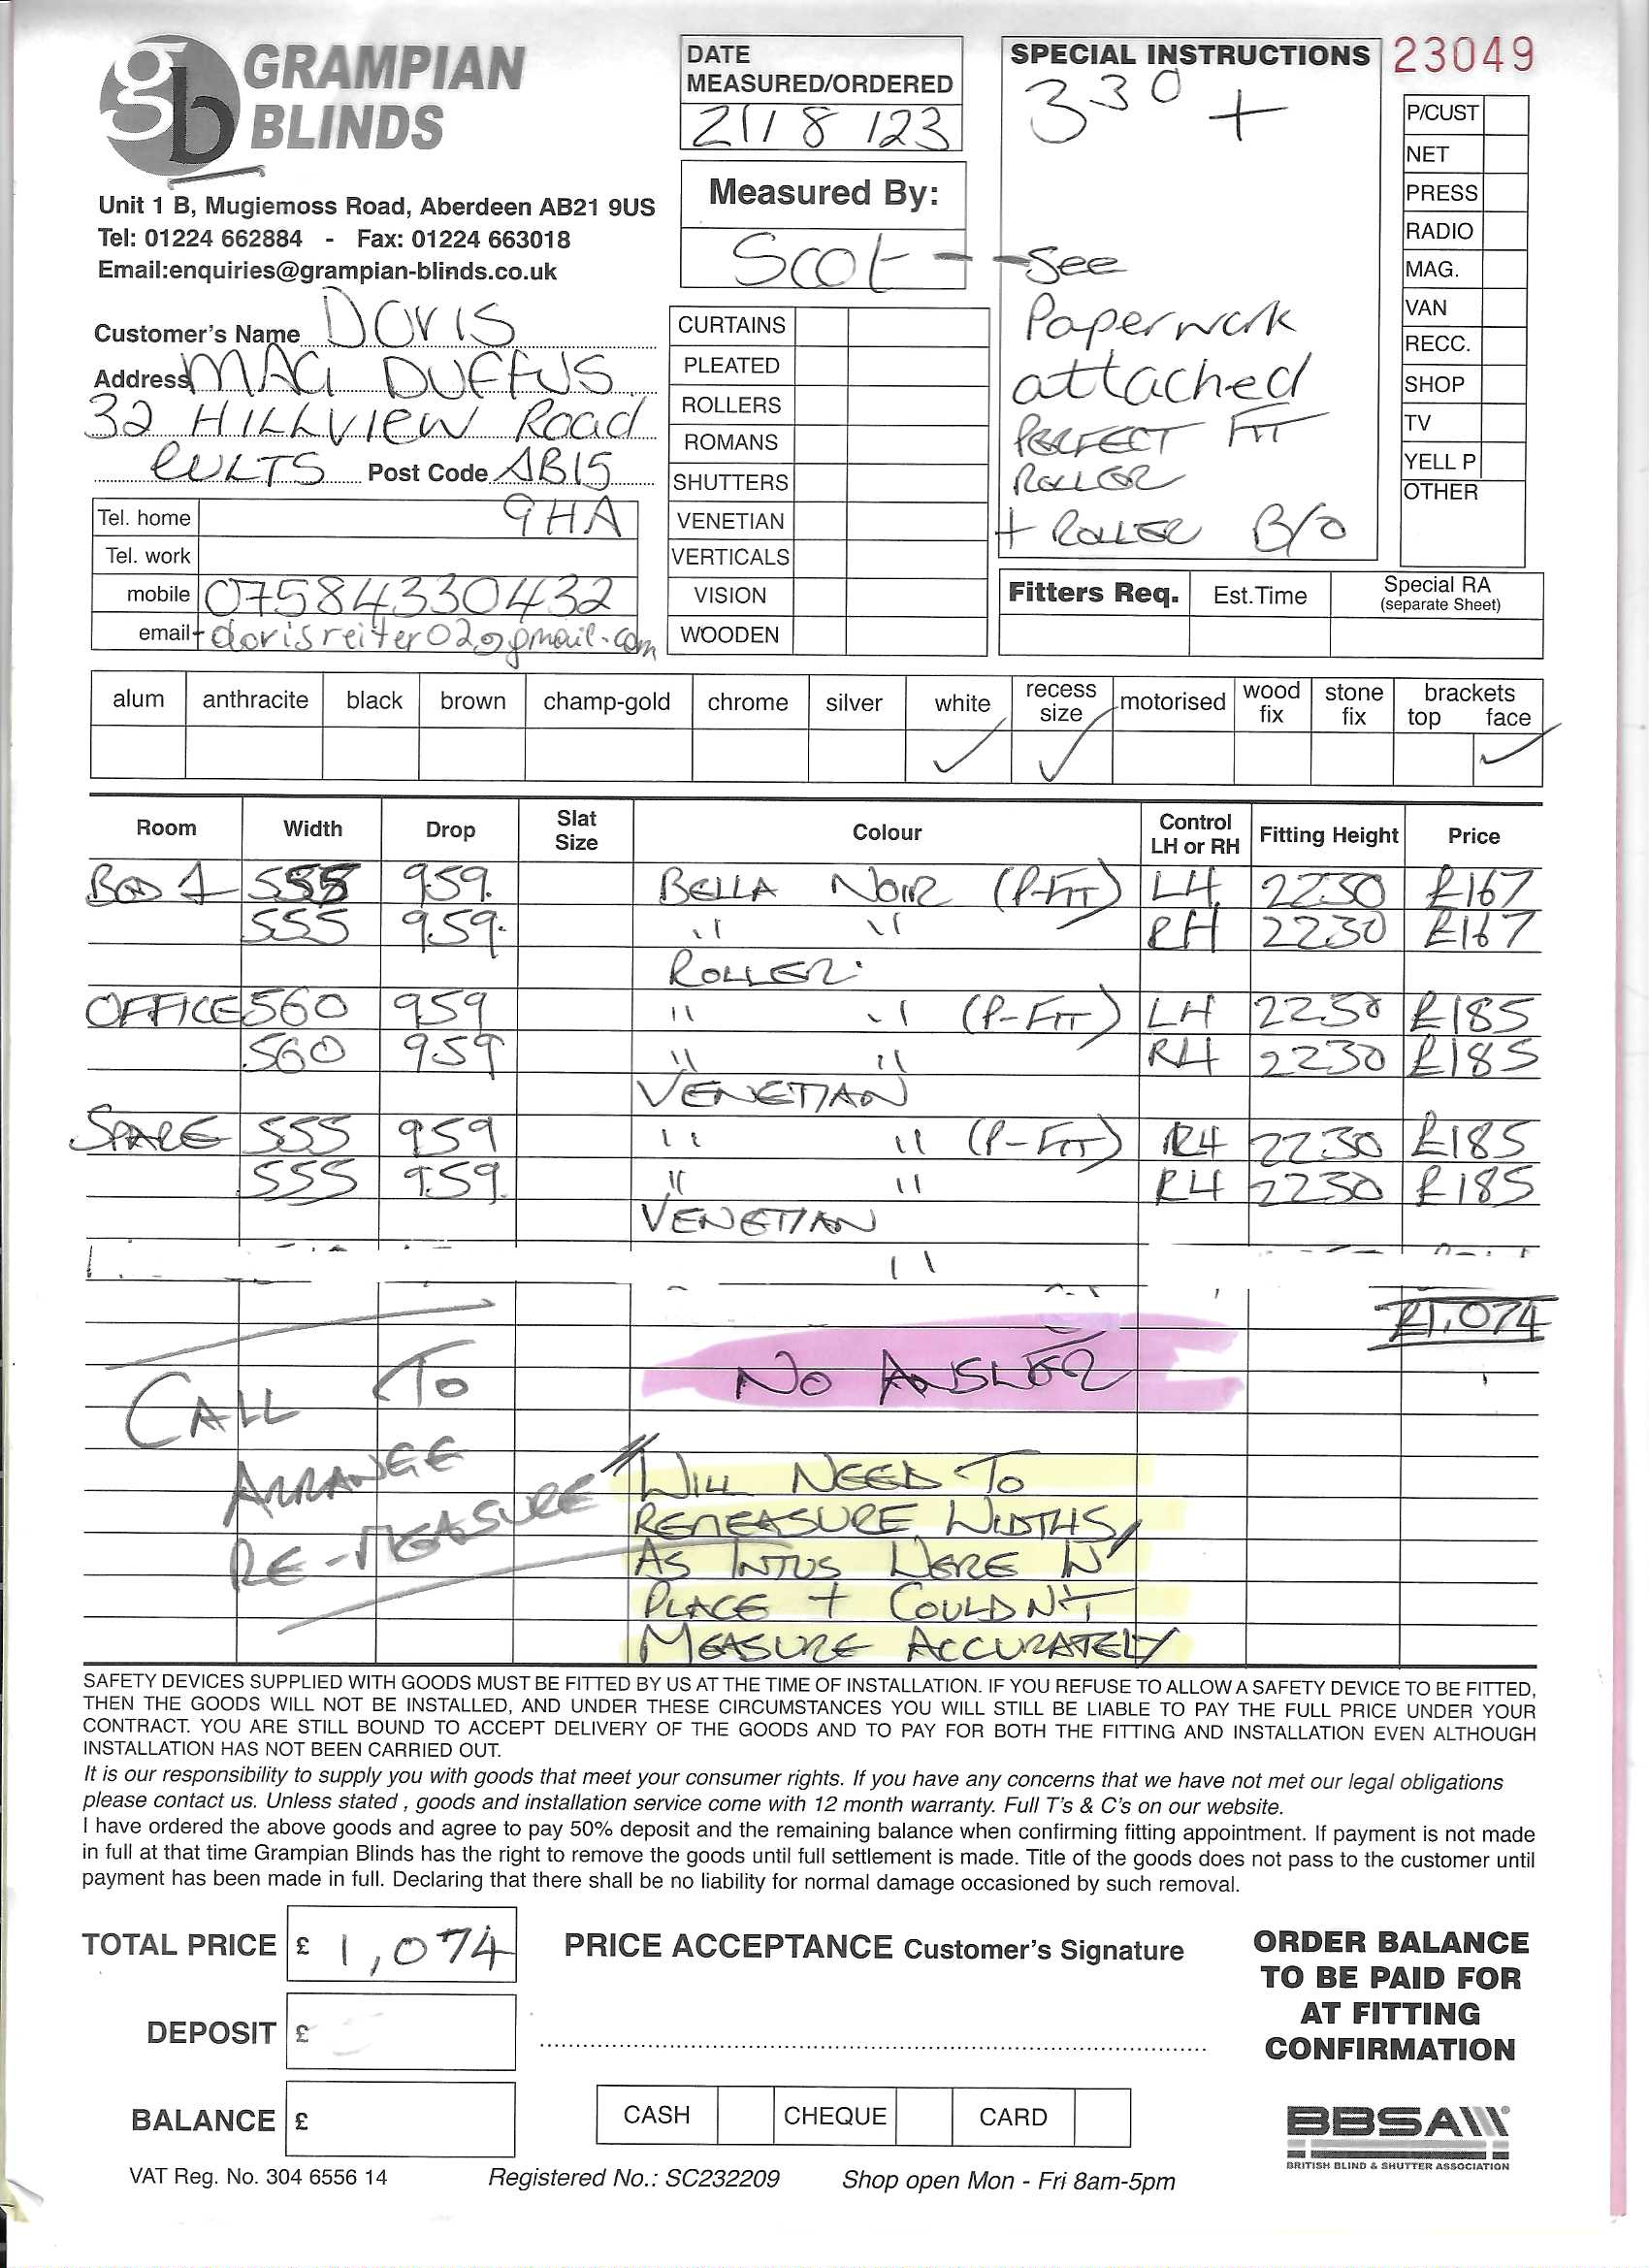 gb GRAMPIAN BLINDS
Unit 1 B, Mugiemoss Road, Aberdeen AB21 9US
Tel: 01224 662884 - Fax: 01224 663018
Email:enquiries@grampian-blinds.co.uk
Customer's Name DORIS
Address MAC DUFFUS
32 HILLVIEW Road
CULTS Post Code AB15
9HA
Tel. home
Tel. work
mobile 07584330432
email dorisreiter02@gmail.com
DATE
MEASURED/ORDERED
21/8/23
Measured By:
Scot
CURTAINS
PLEATED
ROLLERS
ROMANS
SHUTTERS
VENETIAN
VERTICALS
VISION
WOODEN
SPECIAL INSTRUCTIONS
330 +
See
Paperwork
attached
PERFECT FIT
ROLLER
+ ROLLER B/O
23049
P/CUST
NET
PRESS
RADIO
MAG.
VAN
RECC.
SHOP
TV
YELL P
OTHER
Fitters Req. Est.Time Special RA
(separate Sheet)
alum anthracite black brown champ-gold chrome silver white recess size motorised wood fix stone fix brackets top face
✓ ✓ ✓
Room Width Drop Slat Size Colour Control LH or RH Fitting Height Price
BED 1 555 959. BELLA NOIR (P-FIT) LH 2230 £167
555 959. " " RH 2230 £167
ROLLER
OFFICE 560 959 " " (P-FIT) LH 2230 £185
560 959 " " RH 2230 £185
VENETIAN
SPARE 555 959 " " (P-FIT) RH 2230 £185
555 959. " " RH 2230 £185
VENETIAN
"
£1,074
CALL TO
ARRANGE
RE-MEASURE
NO ANSWER
WILL NEED TO
REMEASURE WIDTHS,
AS INTUS WERE IN
PLACE + COULDN'T
MEASURE ACCURATELY
SAFETY DEVICES SUPPLIED WITH GOODS MUST BE FITTED BY US AT THE TIME OF INSTALLATION. IF YOU REFUSE TO ALLOW A SAFETY DEVICE TO BE FITTED,
THEN THE GOODS WILL NOT BE INSTALLED, AND UNDER THESE CIRCUMSTANCES YOU WILL STILL BE LIABLE TO PAY THE FULL PRICE UNDER YOUR
CONTRACT. YOU ARE STILL BOUND TO ACCEPT DELIVERY OF THE GOODS AND TO PAY FOR BOTH THE FITTING AND INSTALLATION EVEN ALTHOUGH
INSTALLATION HAS NOT BEEN CARRIED OUT.
It is our responsibility to supply you with goods that meet your consumer rights. If you have any concerns that we have not met our legal obligations
please contact us. Unless stated , goods and installation service come with 12 month warranty. Full T's & C's on our website.
I have ordered the above goods and agree to pay 50% deposit and the remaining balance when confirming fitting appointment. If payment is not made
in full at that time Grampian Blinds has the right to remove the goods until full settlement is made. Title of the goods does not pass to the customer until
payment has been made in full. Declaring that there shall be no liability for normal damage occasioned by such removal.
TOTAL PRICE £ 1,074
DEPOSIT £
BALANCE £
PRICE ACCEPTANCE Customer's Signature
CASH CHEQUE CARD
ORDER BALANCE
TO BE PAID FOR
AT FITTING
CONFIRMATION
BBSA
BRITISH BLIND & SHUTTER ASSOCIATION
VAT Reg. No. 304 6556 14 Registered No.: SC232209 Shop open Mon - Fri 8am-5pm